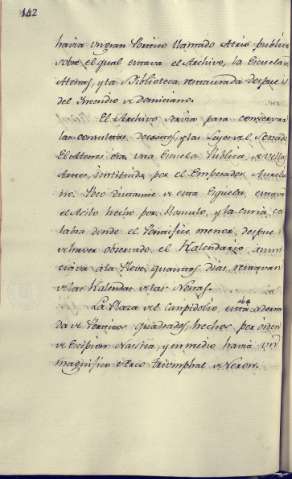 142
havia un gran Portico llamado Atrio publico
sobre el qual estava el Archivo, la Escuela
Atenas, y la Biblioteca, restaurada despues
del Incendio de Domiciano.
El Archivo servia para conservar
las consultas, Decretos, y las Leyes del Senado
El Ateneo era una Escuela Publica, de
Artes, instituida por el Emperador
Poco distante de esta Escuela, estava
el Asilo hecho por Romulo, y la curia
labia donde el Pontifice menor, despues
de haver observado el Kalendario, anun
ciava a la Pleve, quantos dias
de las Kalendas de las Nonas.
La Plaza del Campidolio, estava adorna
da de Porticos quadrados, hechos por orden
de Scipion Nassica, y en medio havia un
magnifico Arco triomphal de Neron.